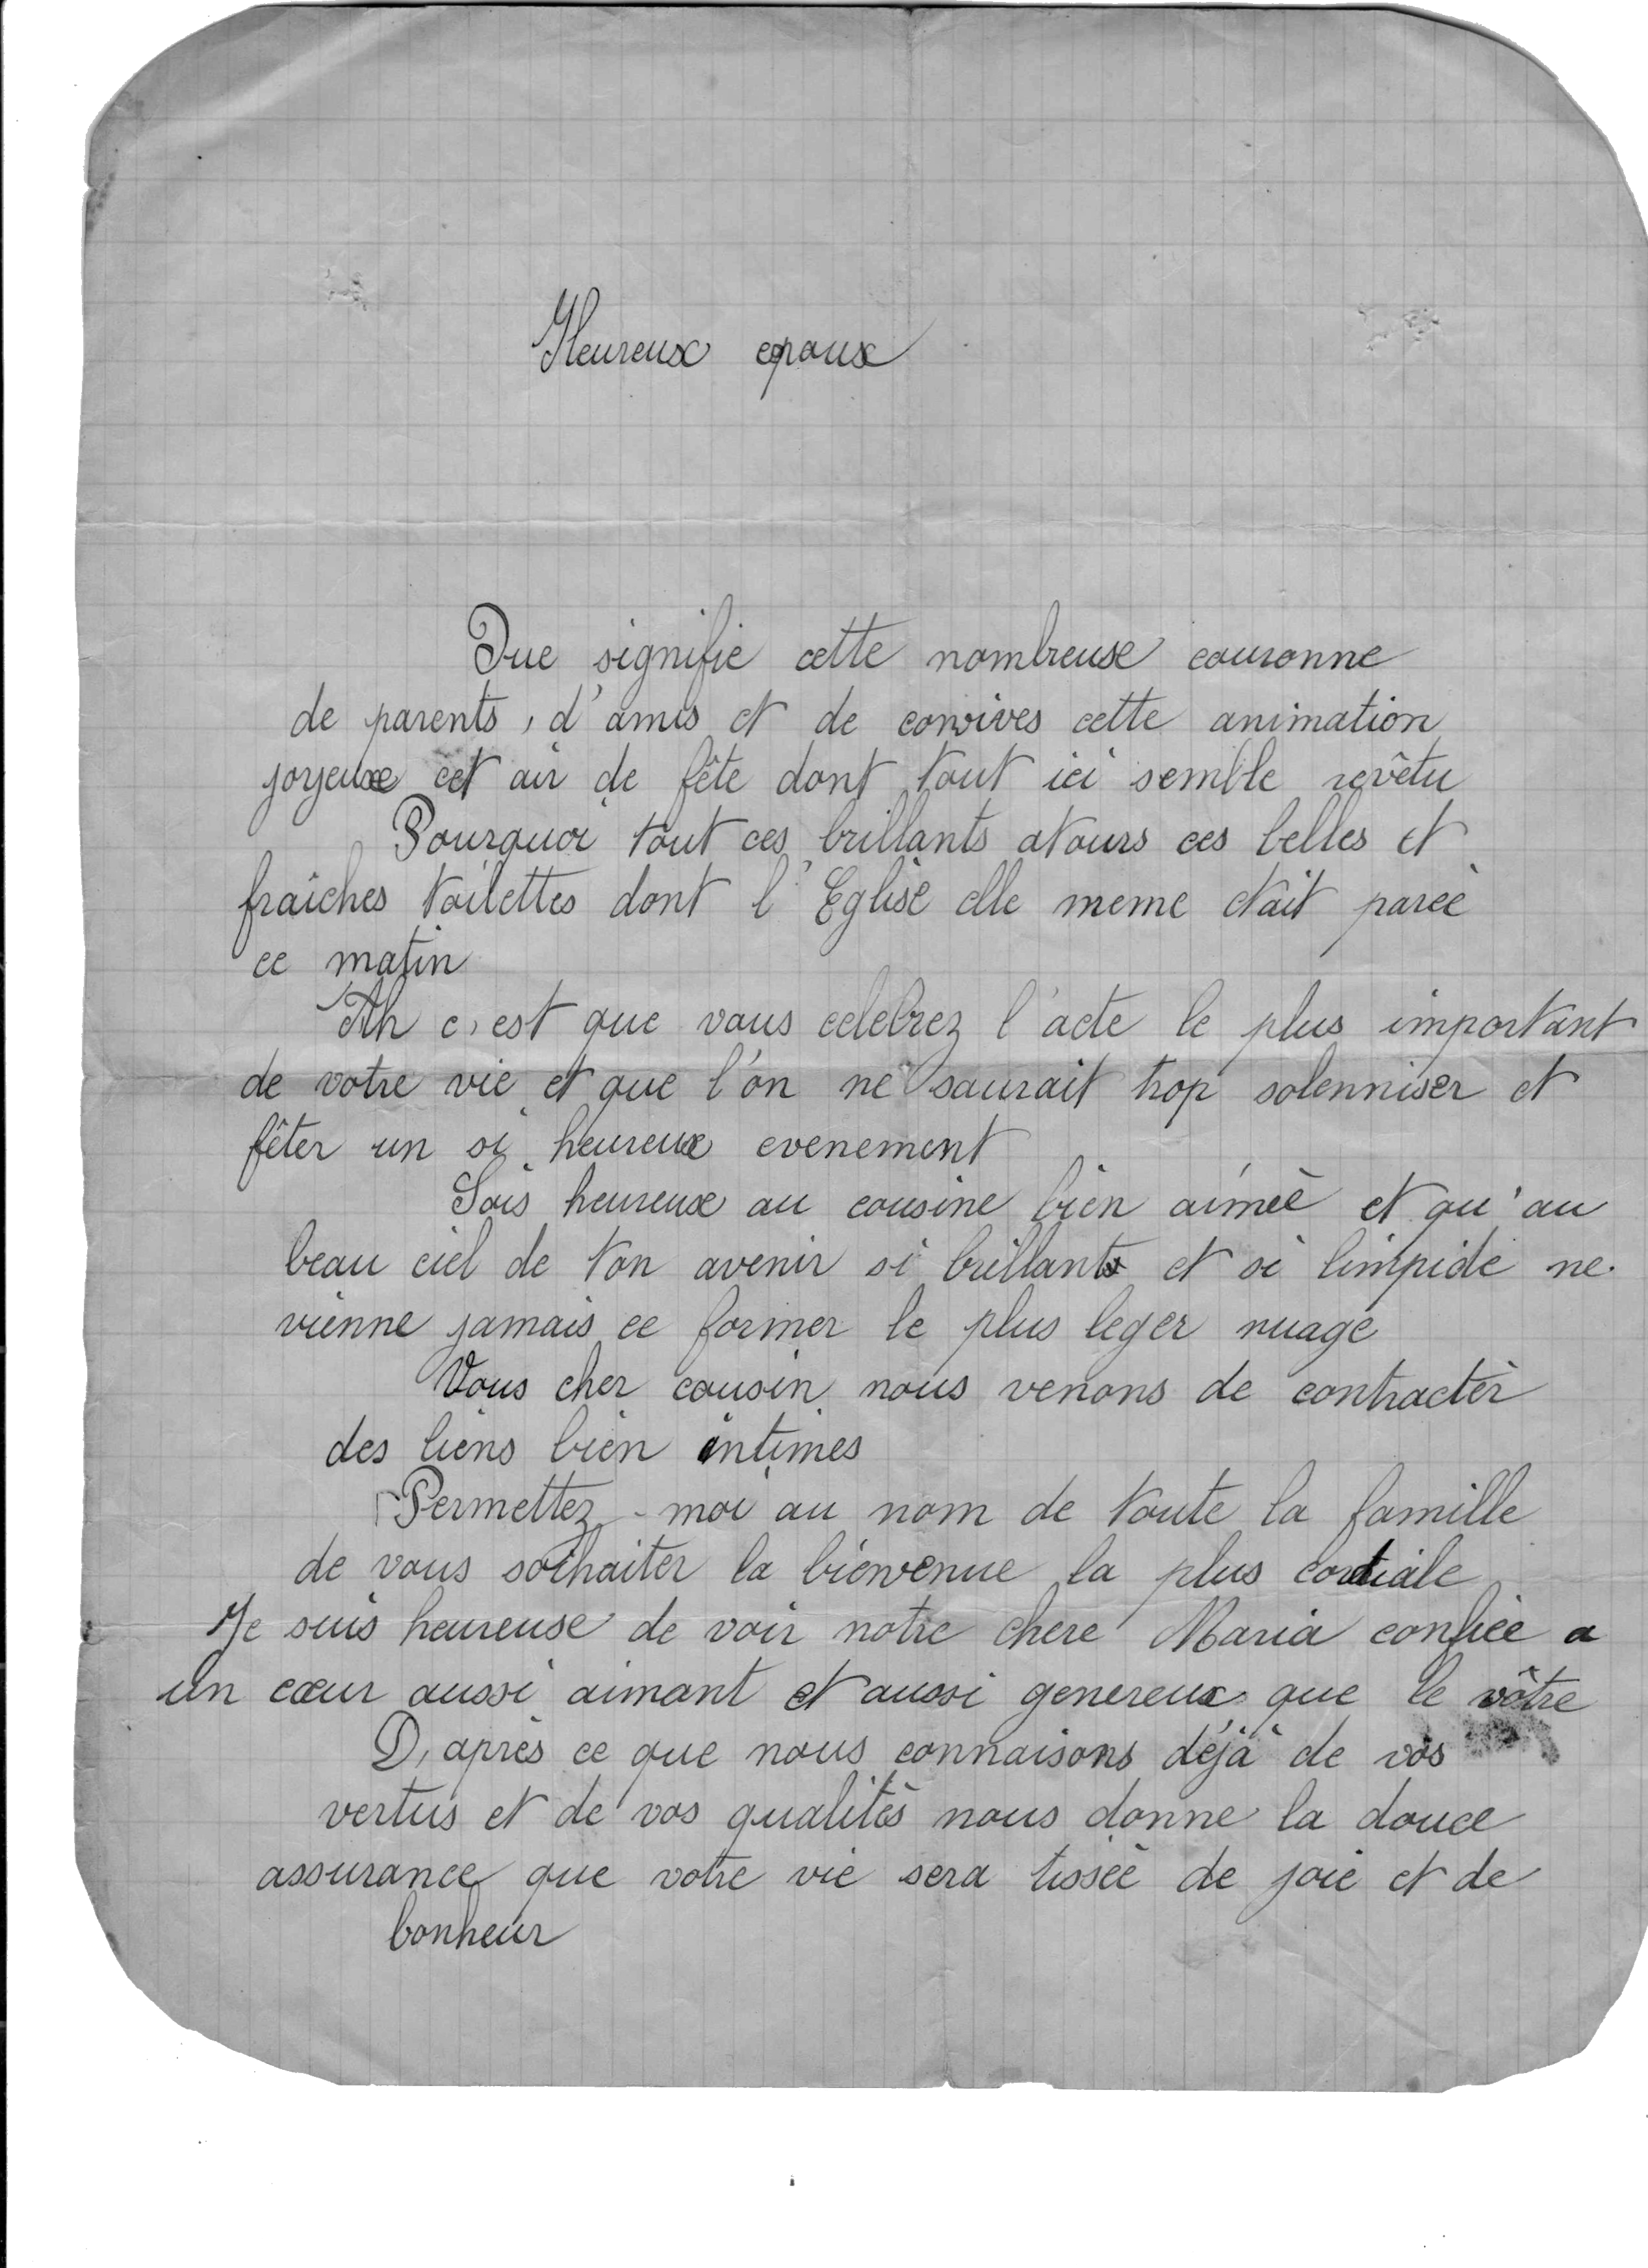 Heureux epoux
Que signifie cette nombreuse couronne
de parents, d'amis et de convives cette animation
joyeuse cet air de fête dont tout ici semble revêtu
Pourquoi tout ces brillants atours ces belles et
fraîches toilettes dont l'Eglise elle meme etait parée
ce matin
Ah c, est que vous celebrez l'acte le plus important
de votre vie et que l'on ne saurait trop solenniser et
fêter un si heureux evenement
Sois heureux au cousine bien aimée et qu'au
beau ciel de ton avenir si brillant et si limpide ne
vienne jamais ce former le plus leger nuage
Vous cher cousin nous venons de contracter
des liens bien intimes
Permettez-moi au nom de toute la famille
de vous soihaiter la bienvenue la plus cordiale
Je suis heureuse de voir notre chere Maria confiée a
un cœur aussi aimant et aussi genereux que le vôtre
D, après ce que nous connaisons déjà de vos
vertus et de vos qualités nous donne la douce
assurance que votre vie sera tissée de joie et de
bonheur